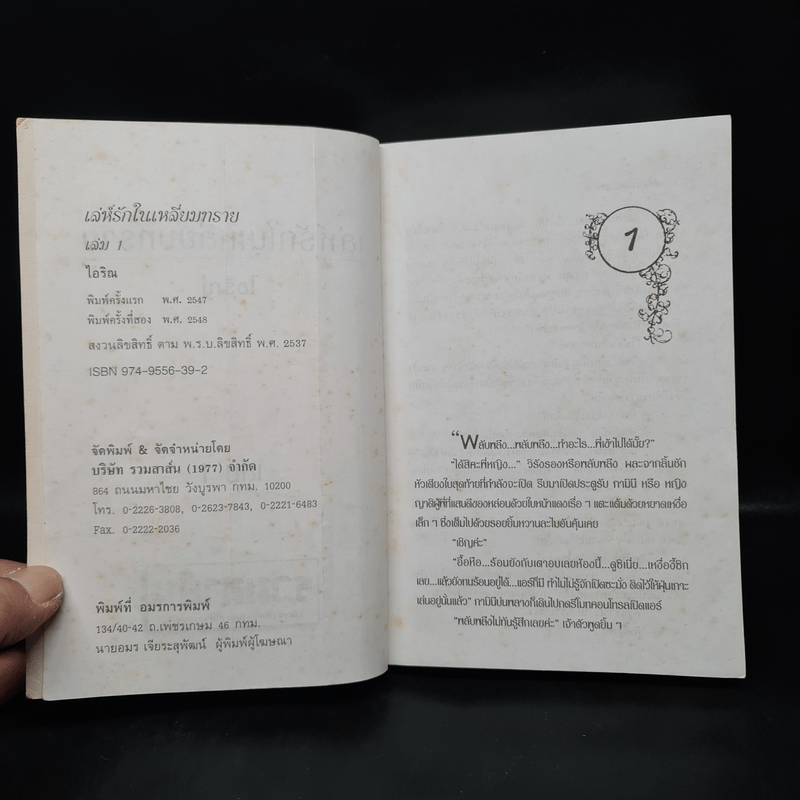 เล่ห์รักในเหลี่ยมทราย
เล่ม 1
ไอริณ
พิมพ์ครั้งแรก พ.ศ. 2547
พิมพ์ครั้งที่สอง พ.ศ. 2548
สงวนลิขสิทธิ์ ตาม พ.ร.บ.ลิขสิทธิ์ พ.ศ. 2537
ISBN 974-9556-39-2
จัดพิมพ์ & จัดจำหน่ายโดย
บริษัท รวมสาส์น (1977) จำกัด
864 ถนนมหาไชย วังบูรพา กทม. 10200
โทร. 0-2226-3808, 0-2623-7843, 0-2221-6483
Fax. 0-2222-2036
พิมพ์ที่ อมรการพิมพ์
134/40-42 ถ.เพชรเกษม 46 กทม.
นายอมร เจียระสุพัฒน์ ผู้พิมพ์ผู้โฆษณา
1
“พลับพลึง...พลับพลึง...ทำอะไร...พี่เข้าไปได้มั้ย?”
“ได้สิคะพี่หญิง...” วิรังรองหรือพลับพลึง ผละจากลิ้นชัก
หัวเตียงใบสุดท้ายที่กำลังจะเปิด รีบมาเปิดประตูรับ กามินี หรือ หญิง
ญาติผู้พี่ที่แสนดีของหล่อนด้วยใบหน้าแดงเรื่อ ๆ แตะแต้มด้วยหยาดเหงื่อ
เล็ก ๆ ซึ่งเต็มไปด้วยรอยยิ้มหวานละไมอันคุ้นเคย
“เชิญค่ะ”
“อื้อหือ...ร้อนยังกับเตาอบเลยห้องนี้...ดูซิเนี่ย...เหงื่อซี้ซิก
เลย...แล้วยังทนร้อนอยู่ได้...แอร์ก็มี ทำไมไม่รู้จักเปิดซะมั่ง ติดไว้ให้ฝุ่นเกาะ
เล่นอยู่นั่นแล้ว” กามินีบ่นพลางก็เดินไปกดรีโมทคอนโทรลเปิดแอร์
“พลับพลึงไม่ทันรู้สึกเลยค่ะ” เจ้าตัวพูดยิ้ม ๆ